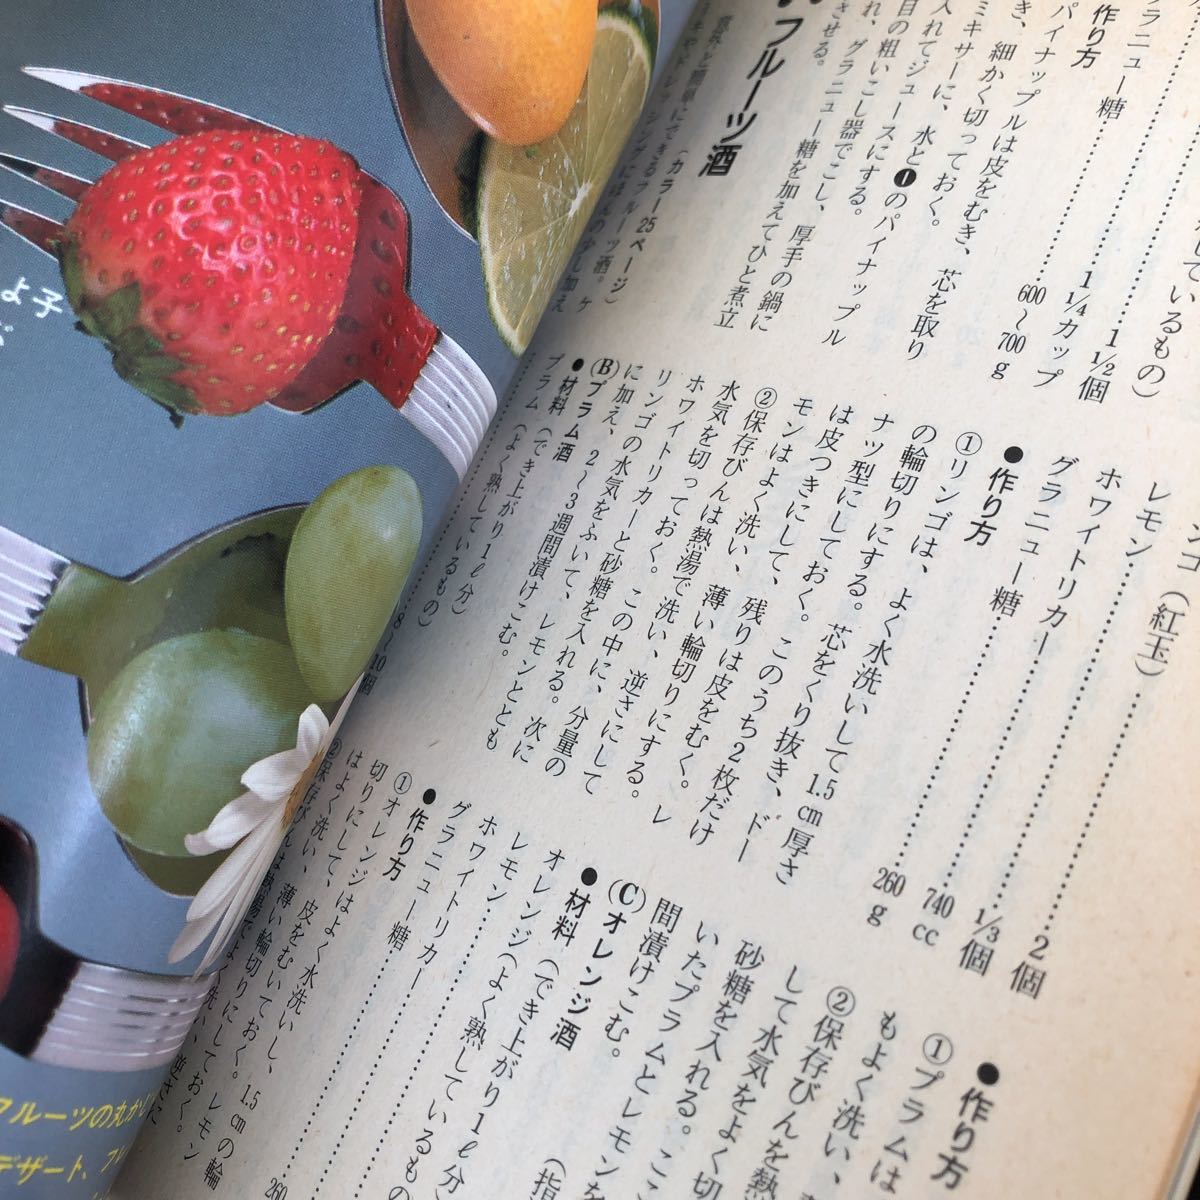 ているもの）
1½個
グラニュー糖
1¼カップ
作り方
パイナップルは皮をむき、芯を取り
き、細かく切っておく。
ミキサーに、水と❶のパイナップル
入れてジュースにする。
目の粗いこし器でこし、厚手の鍋に
れ、グラニュー糖を加えてひと煮立
させる。
600〜700g
フルーツ酒
（カラー25ページ）
意外と簡単にできるフルーツ酒。ケ
ーキやドレッシングにほんの少し加え
（紅玉）
2個
レモン
1/3個
ホワイトリカー
740cc
グラニュー糖
260g
●作り方
①リンゴは、よく水洗いして1.5cm厚さ
の輪切りにする。芯をくり抜き、ドー
ナツ型にしておく。このうち2枚だけ
は皮つきにして、残りは皮をむく。レ
モンはよく洗い、薄い輪切りにする。
②保存びんは熱湯で洗い、逆さにして
水気を切っておく。この中に、分量の
ホワイトリカーと砂糖を入れる。次に
リンゴの水気をふいて、レモンととも
に加え、2〜3週間漬けこむ。
(B)プラム酒
●材料（でき上がり1ℓ分）
プラム（よく熟しているもの）
8〜10個
●作り方
①プラムは
もよく洗い、
②保存びんを
して水気をよく切
砂糖を入れる。ここ
いたプラムとレモンを
間漬けこむ。
(C)オレンジ酒
●材料（でき上がり1ℓ分）
オレンジ（よく熟しているもの
レモン
ホワイトリカー
グラニュー糖
260
●作り方
①オレンジはよく水洗いし、1.5cmの輪
切りにして、皮をむいておく。レモン
はよく洗い、薄い輪切りにしておく。
②保存びんは熱湯でよく洗い、逆さに
よ子
フルーツの丸かじ
デザート、フレ